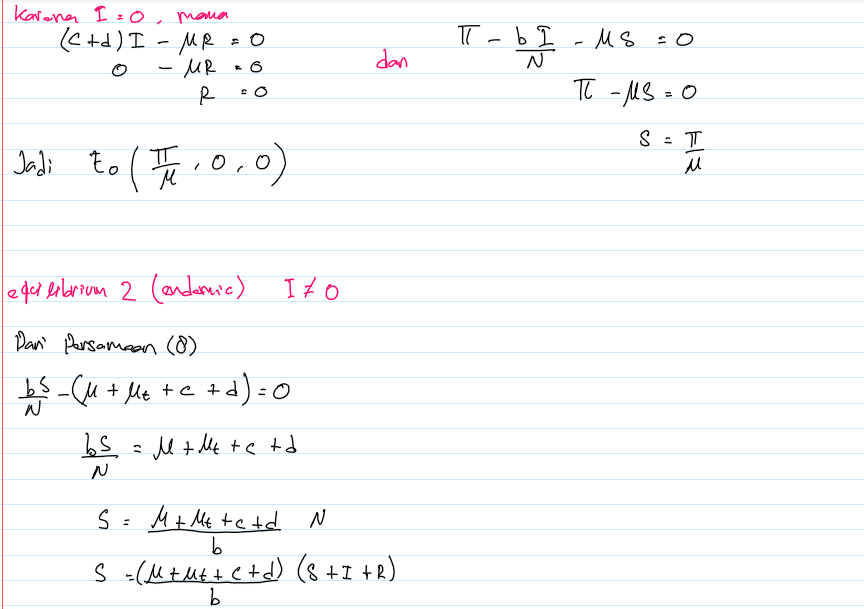 Karena I = 0, maka
(c+d)I - μR = 0
0 - μR = 0
R = 0
dan
π - bI/N - μS = 0
π - μS = 0
S = π/μ
Jadi E₀(π/μ, 0, 0)
equilibrium 2 (endemic) I ≠ 0
Dari Persamaan (8)
bS/N - (μ + μt + c + d) = 0
bS/N = μ + μt + c + d
S = μ + μt + c + d / b N
S = (μ + μt + c + d)/b (S + I + R)